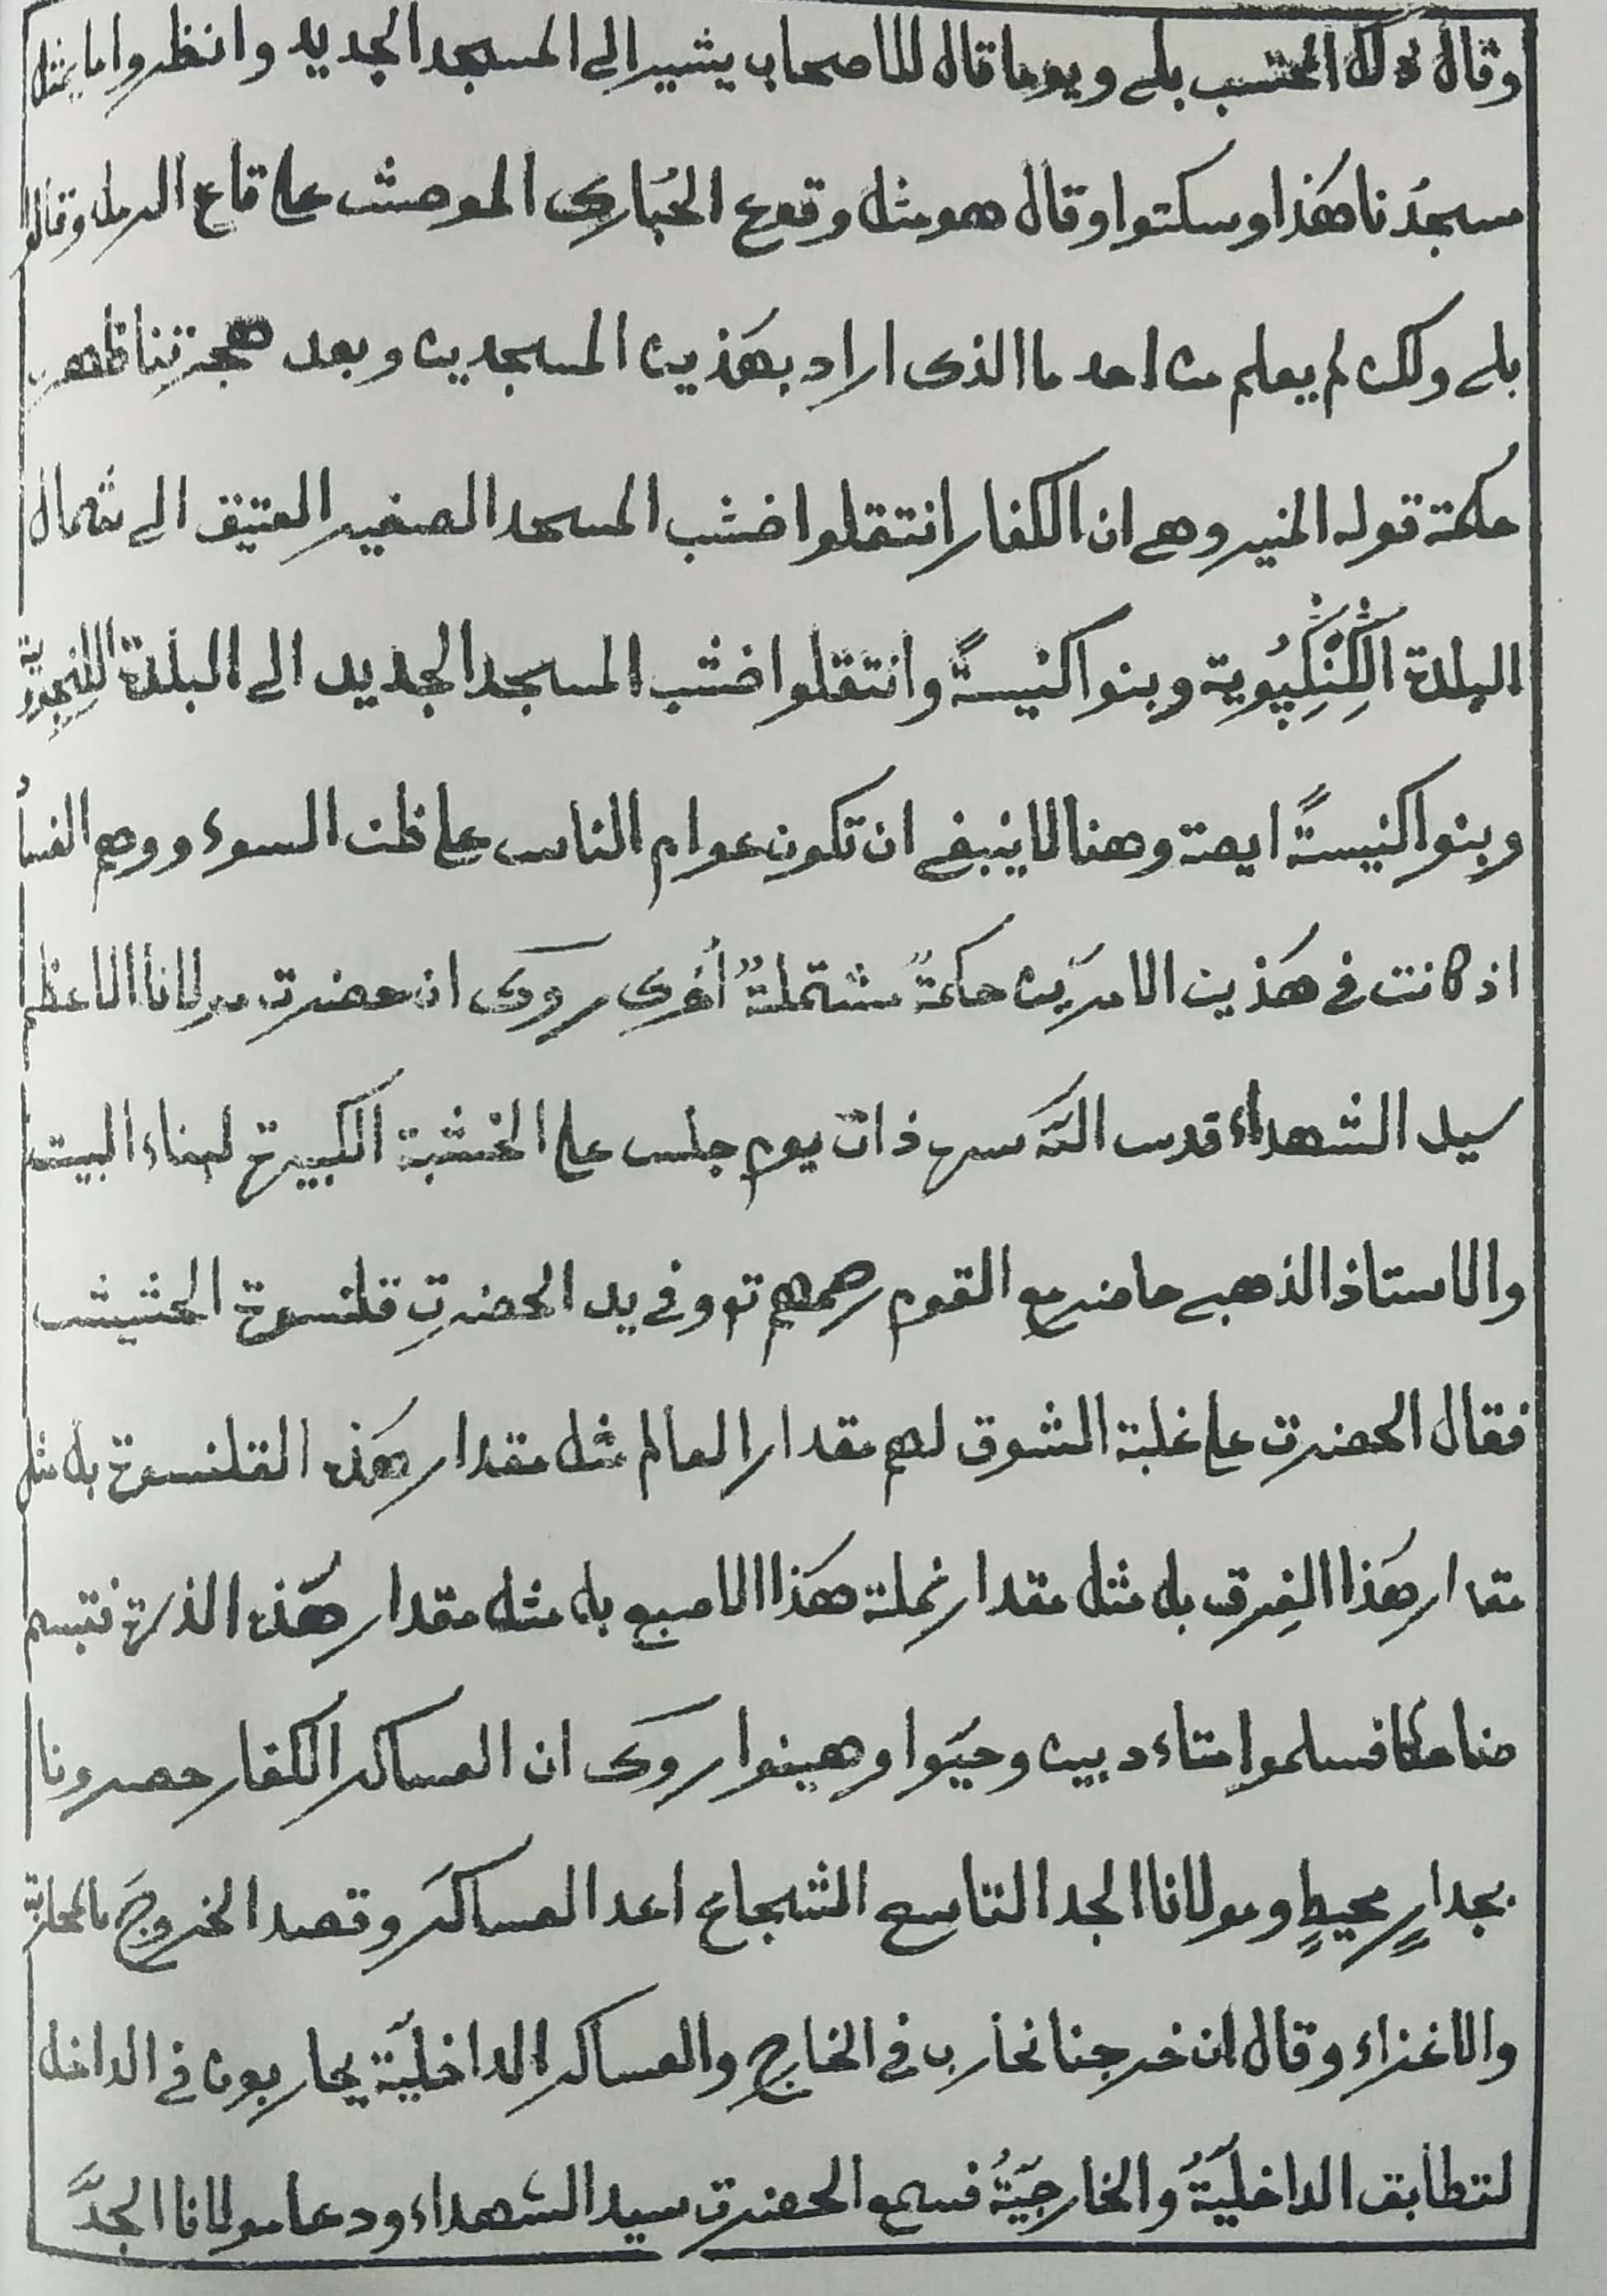 وقال ذلك المحتسب بلے ويوما قال للاصحاب يشير الے المسجد الجديد وانظروا ما يمثل
مسجدُنا هٰكذا وسكتوا وقال هو مثل وقوع الحُبارى الموحش علے قاع الرمل وقالوا
بلے ولكن لم يعلم من احد ما الذى اراد بهٰذين المسجدين وبعد هجرتنا ظهرت
حكمة قوله المنير وهے ان الكفار انتقلوا خشب المسجد الصغير العتيق الے شمال
البلدة الكِنْكِپُوية وبنوا كنيسةً وانتقلوا خشب المسجد الجديد الى البلدة
وبنوا كنيسةً ايضة وهنا لا ينبغے ان تكون عوام الناس علے ظن السوء ووهم الفسأ
اذ كانت فى هٰذين الامرَين حكمةٌ مشتملةٌ أخرى روى ان حضرت مولانا الاعظم
سيد الشهداء قدس اللّٰه سره ذات يوم جلس علے الخشبة الكبيرة لبناء البيت
والاستاذ الذهبے حاضر مع القوم رحمهم تع وفے يد الحضرتِ قلنسوة الحشيش
فقال الحضرت علے غلبة الشوق لهم مقدار العالم مثل مقدار هٰذه القلنسوة بل مثل
مقدار هٰذا الفِرق بل مثل مقدار نملة هٰذا الاصبع بل مثل مقدار هٰذه الذرة فتبسم
ضاحكا فسلموا متاءدبين وحيّوا وهينوا روى ان العساكر الكفار حصرونا
بجدارٍ محيطٍ ومولانا الجد التاسع الشجاع اعد العساكرَ وقصد الخروجَ بالمحاربة
والاغزاء وقال ان خرجنا نحارب فى الخارج والعساكر الداخليّة يحاربون فى الداخل
لتطابق الداخليّةُ والخارجيّةُ فسمع الحضرت سيد الشهداء ودعا مولانا الجدَّ